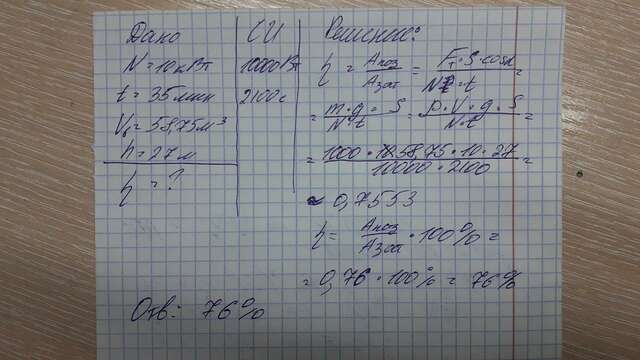 Дано
N = 10 кВт
t = 35 мин
Vв = 58,75 м³
h = 27 м
η = ?
СИ
10000 Вт
2100 с
Решение:
η = Aпол/Aзат = Fт·S·cosα/N·t =
= m·g·S/N·t = ρ·V·g·S/N·t =
= 1000·58,75·10·27/10000·2100 =
≈ 0,7553
η = Aпол/Aзат · 100% =
= 0,76 · 100% = 76%
Отв: 76%